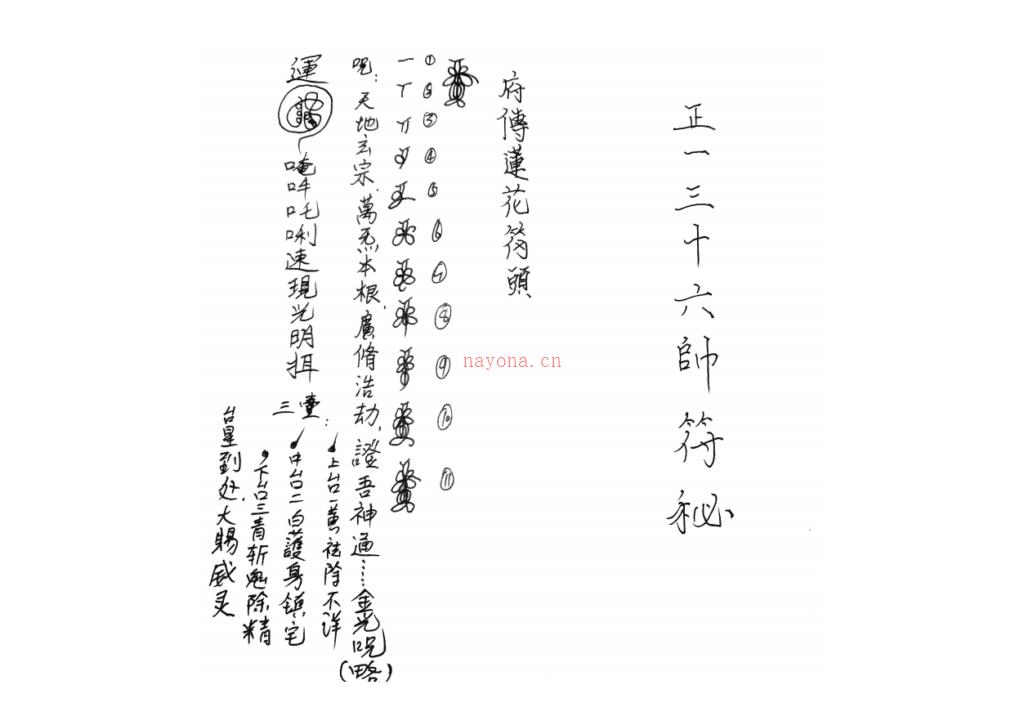 正一三十六帥符秘
府傳蓮花符頭
① ② ③ ④ ⑤ ⑥ ⑦ ⑧ ⑨ ⑩ ⑪
呪：天地玄宗，萬炁本根，廣脩浩劫，證吾神通……金光呪(略)
運
唵吽吒唎速現光明揖
三臺：
上台一黃祛除不详
中台二白護身鎮宅
下台三青斩鬼除精
台星到处，大賜威灵
nayona.cn